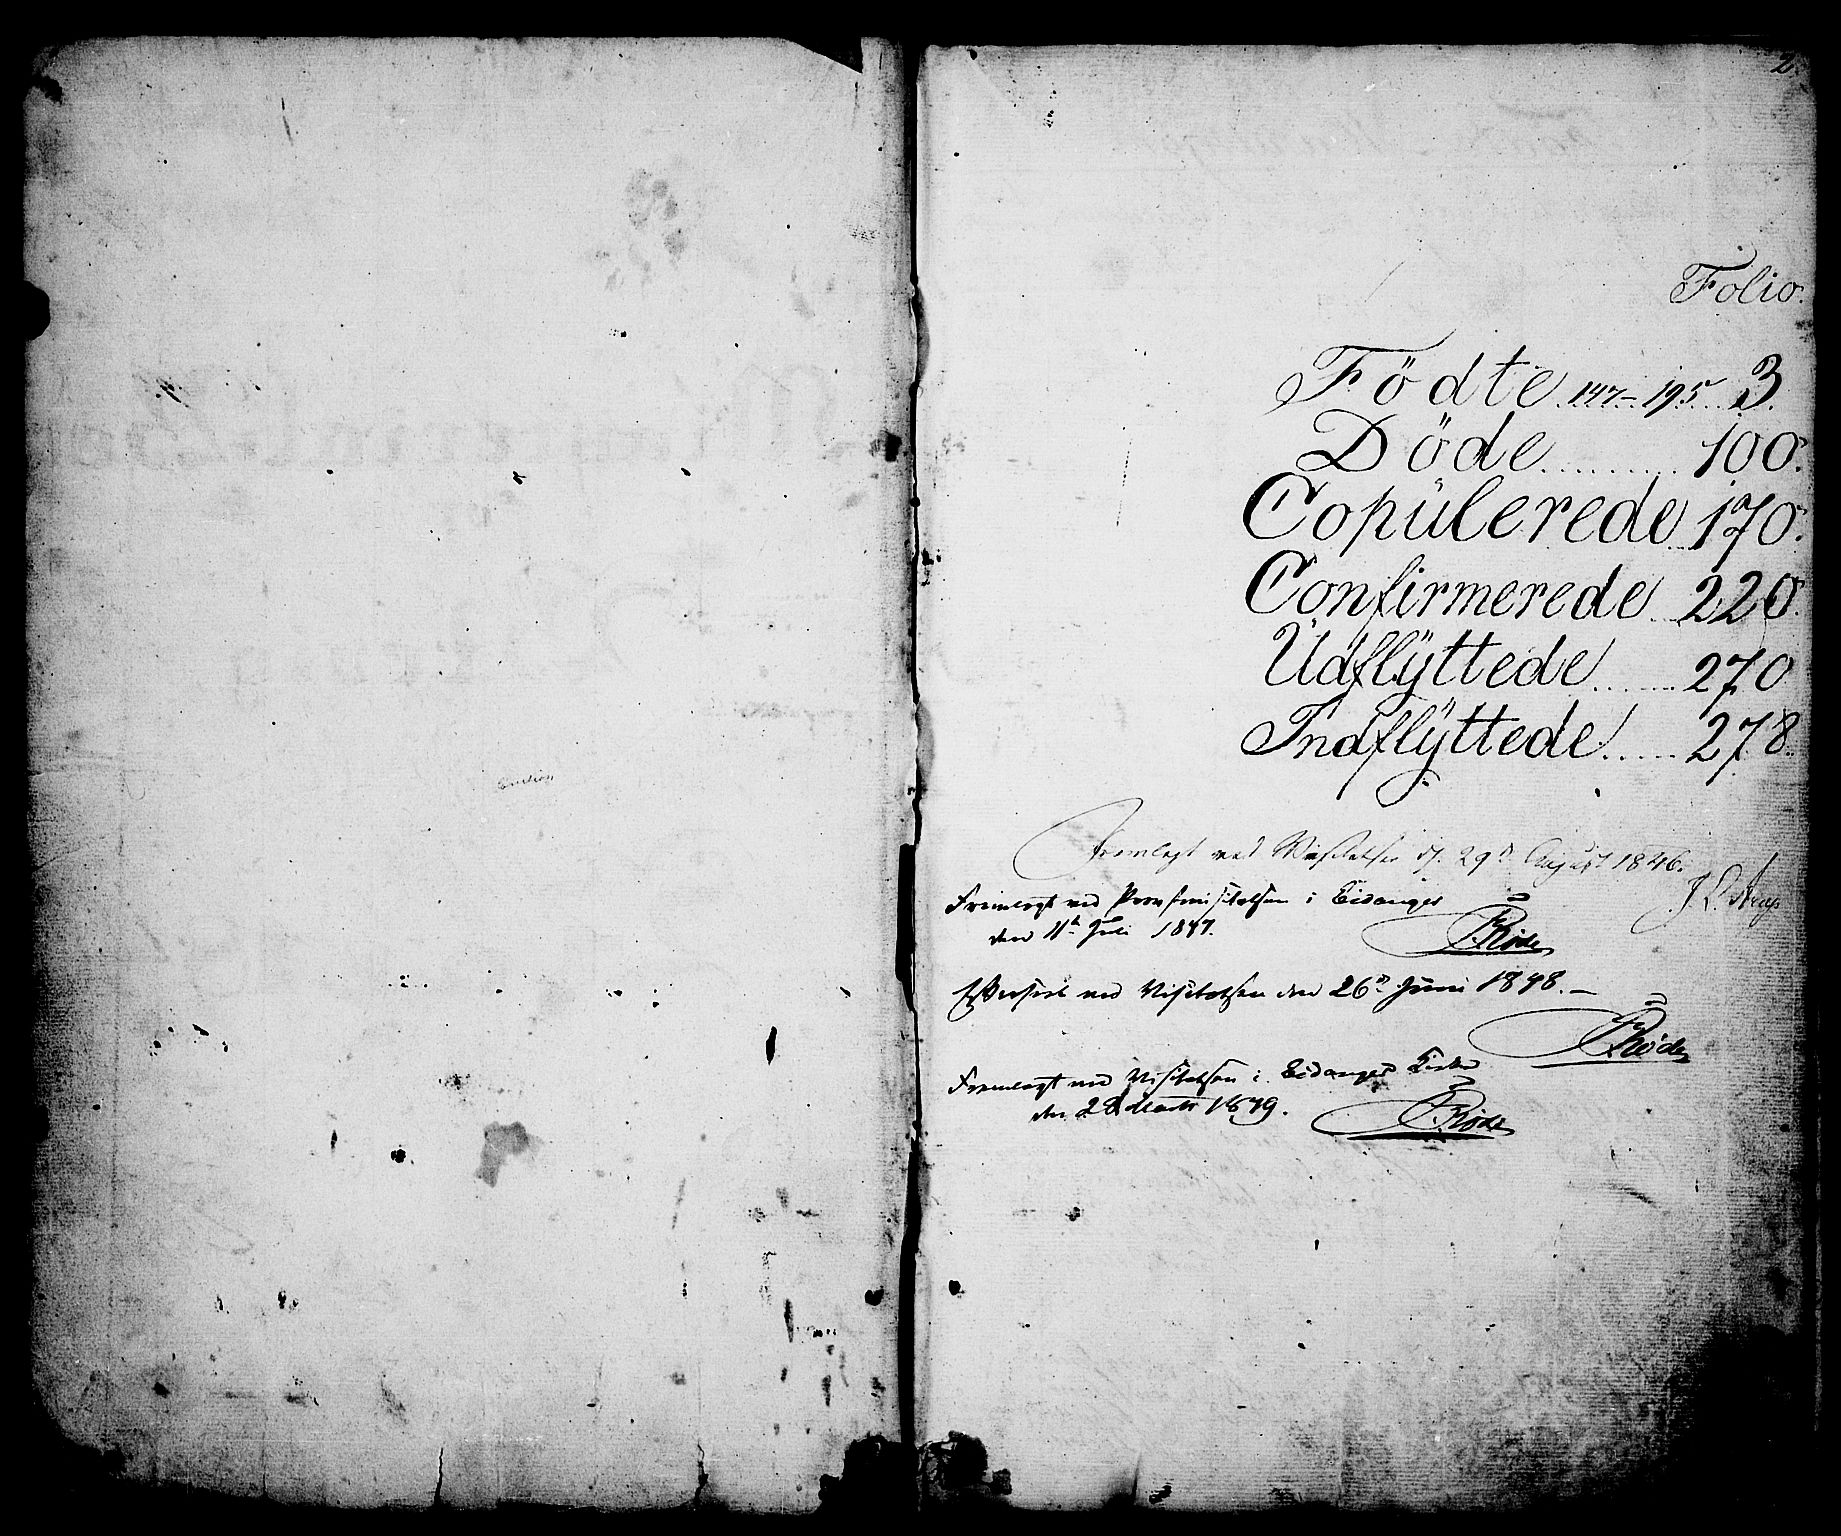 2.
Folio.
Födte 147-195 3.
Döde 100.
Copülerede 170.
Confirmerede 220.
Üdflÿttede 270
Indflÿttede 278.
Fremlagt ved Visitatsen d. 29d August 1846.
J. L. Arup
Fremlagt ved Provsevisitatsen i Eidanger
den 11te Juli 1847.
Rode
ved Visitatsen den 26d Juni 1848. —
Rode
Fremlagt ved Visitatsen i Eidanger Kirke
den 28 Marts 1849.
Rode